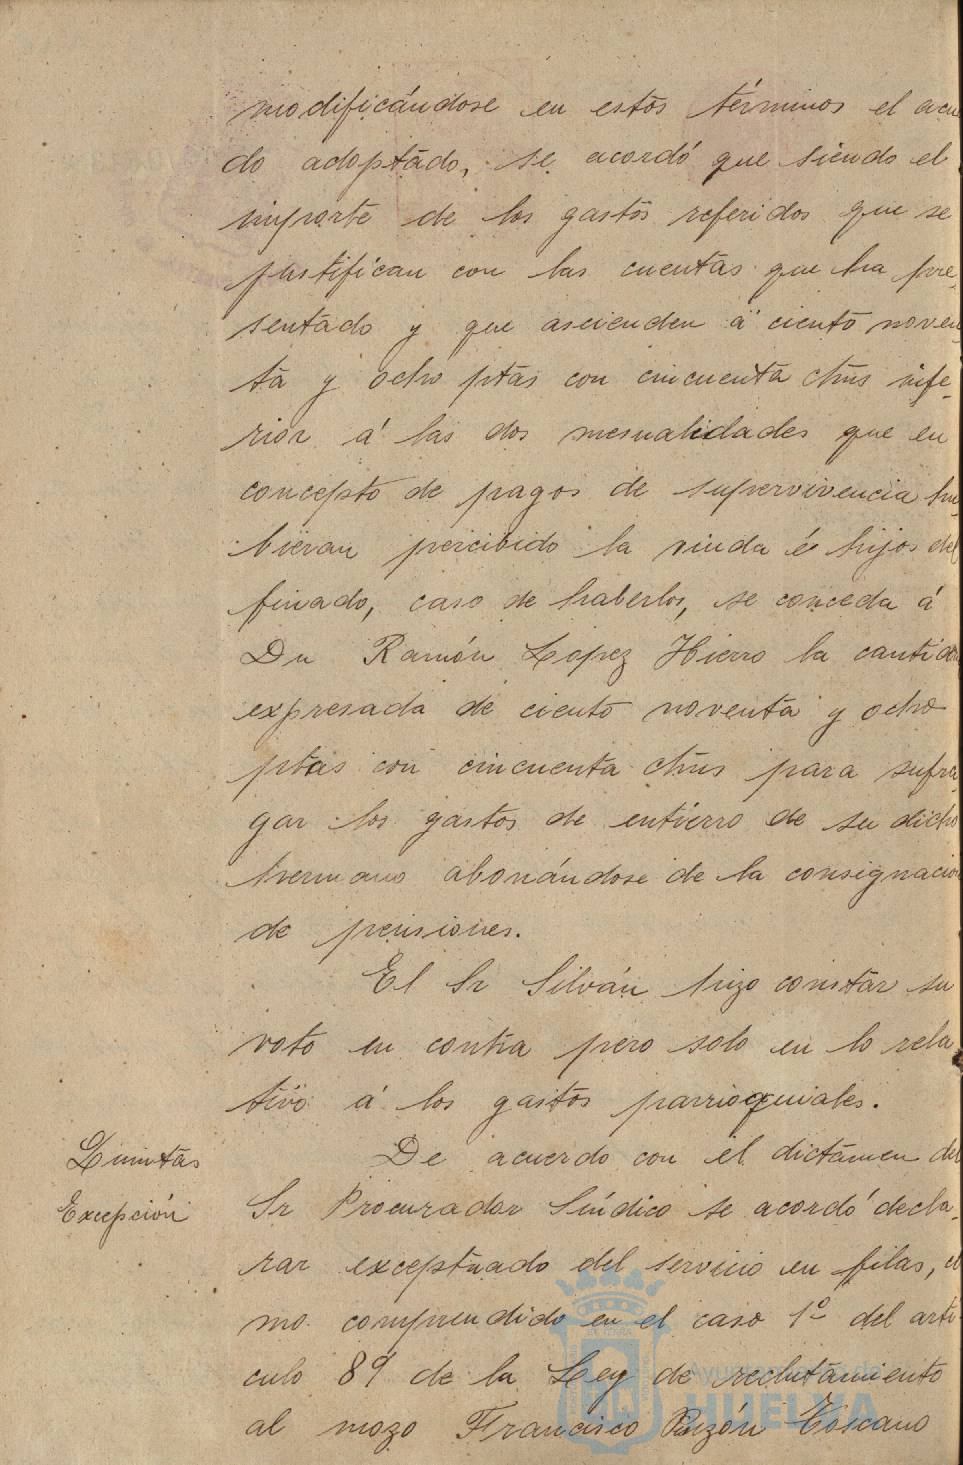 modificándose en estos términos el acuer
do adoptado, se acordó que siendo el
importe de los gastos referidos que se
justifican con las cuentas que ha pre-
sentado y que ascienden á ciento noven-
ta y ocho ptas con cincuenta ctms infe-
rior á las dos mesualidades que en
concepto de pagos de supervivencia hu-
bieran percibido la viuda é hijos del
finado, caso de haberlos, se conceda á
Dn Ramón Lopez Hierro la cantidad
expresada de ciento noventa y ocho
ptas con cincuenta ctms para sufra-
gar los gastos de entierro de su dicho
hermano abonándose de la consignación
de pensiones.
El Sr Silván hizo constar su
voto en contra pero solo en lo rela
tivo á los gastos parrioquiales.
Quintas
Excepción
De acuerdo con el dictámen del
Sr Procurador Síndico se acordó decla-
rar exceptuado del servicio en filas, co
mo comprendido en el caso 1º del artí-
culo 89 de la Ley de reclutamiento
al mozo Francisco Pinzón Toscano
Ayuntamiento de
HUELVA